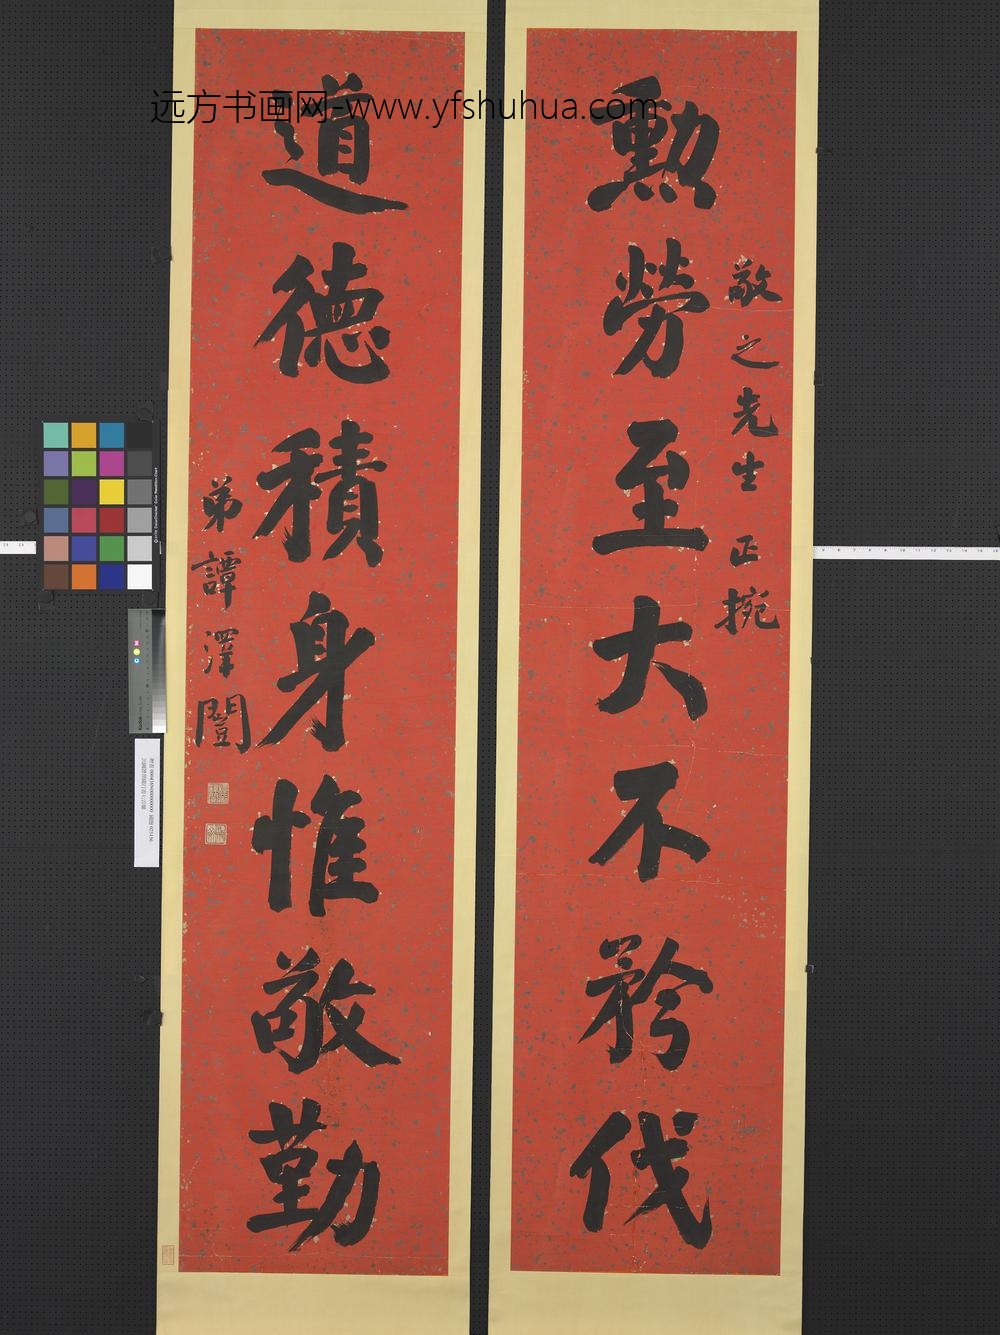 远方书画网-www.yfshuhua.com
敬之先生正捥
勲勞至大不矜伐
道德積身惟敬勤
弟譚澤闓